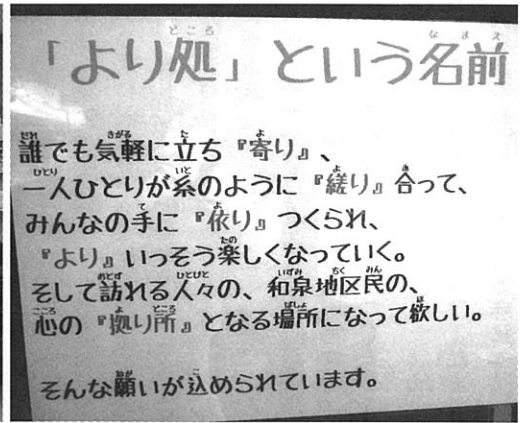 「より処」という名前
誰でも気軽に立ち『寄り』、
一人ひとりが糸のように『縒り』合って、
みんなの手に『依り』つくられ、
『より』いっそう楽しくなっていく。
そして訪れる人々の、和泉地区民の、
心の『拠り所』となる場所になって欲しい。
そんな願いが込められています。